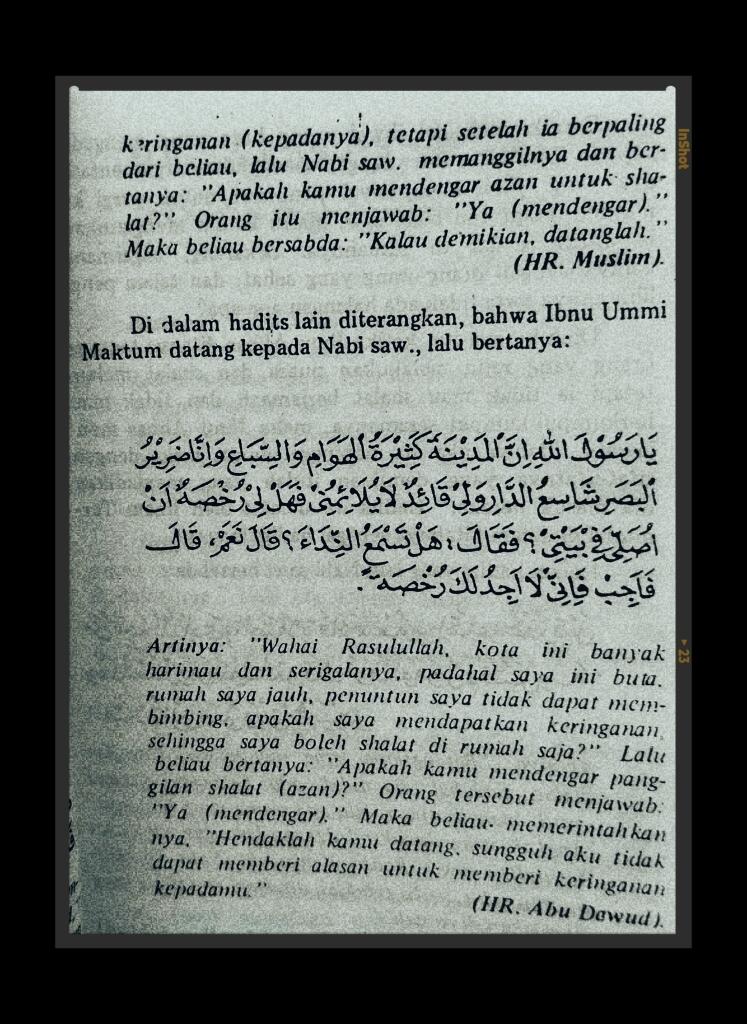 keringanan (kepadanya), tetapi setelah ia berpaling
dari beliau, lalu Nabi saw. memanggilnya dan ber-
tanya: "Apakah kamu mendengar azan untuk sha-
lat?" Orang itu menjawab: "Ya (mendengar)."
Maka beliau bersabda: "Kalau demikian, datanglah."
(HR. Muslim).
Di dalam hadits lain diterangkan, bahwa Ibnu Ummi
Maktum datang kepada Nabi saw., lalu bertanya:
يَارَسُوْلَ اللهِ اِنَّ الْمَدِيْنَةَ كَثِيْرَةُ الْهَوَامِ وَالسِّبَاعِ وَاَنَاضَرِيْرُ
الْبَصَرِ شَاسِعُ الدَّارِ وَلِيْ قَائِدٌ لَايُلَائِمُنِيْ فَهَلْ لِيْ رُخْصَةٌ اَنْ
اُصَلِّيَ فِيْ بَيْتِيْ؟ فَقَالَ: هَلْ تَسْمَعُ النِّدَاءَ؟ قَالَ نَعَمْ، قَالَ
فَاَجِبْ فَاِنِّيْ لَا اَجِدُ لَكَ رُخْصَةً.
Artinya: "Wahai Rasulullah, kota ini banyak
harimau dan serigalanya, padahal saya ini buta,
rumah saya jauh, penuntun saya tidak dapat mem-
bimbing, apakah saya mendapatkan keringanan,
sehingga saya boleh shalat di rumah saja?" Lalu
beliau bertanya: "Apakah kamu mendengar pang-
gilan shalat (azan)?" Orang tersebut menjawab:
"Ya (mendengar)." Maka beliau memerintahkan
nya, "Hendaklah kamu datang, sungguh aku tidak
dapat memberi alasan untuk memberi keringanan
kepadamu."
(HR. Abu Dawud).
InShot
23